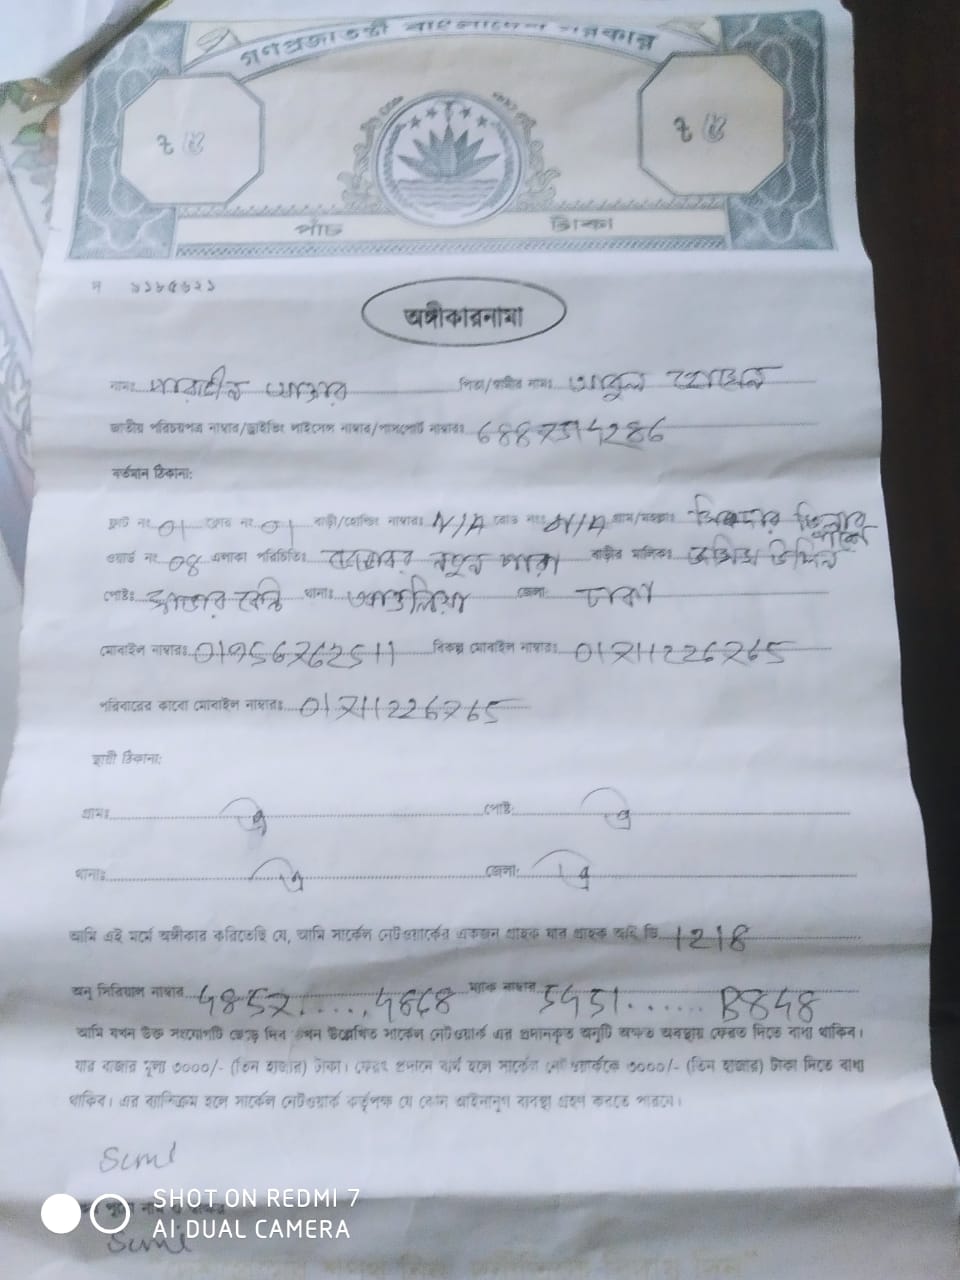 গণপ্রজাতন্ত্রী বাংলাদেশ সরকার
৳ ৫ ৳ ৫
পাঁচ টাকা
অঙ্গীকারনামা
নামঃ আক্তার পিতা/স্বামীর নামঃ আবুল হোসেন
জাতীয় পরিচয়পত্র নাম্বার/ড্রাইভিং লাইসেন্স নাম্বার/পাসপোর্ট নাম্বারঃ 6887514286
বর্তমান ঠিকানা:
ফ্লাট নং 01 ফ্লোর নং 01 বাড়ী/হোল্ডিং নাম্বারঃ N/A রোড নংঃ N/A গ্রাম/মহল্লাঃ
ওয়ার্ড নং 08 এলাকা পরিচিতিঃ নতুন পাড়া বাড়ীর মালিকঃ উদ্দিন
পোষ্টঃ থানাঃ আশুলিয়া জেলা ঢাকা
মোবাইল নাম্বারঃ বিকল্প মোবাইল নাম্বারঃ 01711226765
পরিবারের কারো মোবাইল নাম্বারঃ 01711226765
স্থায়ী ঠিকানা:
গ্রামঃ ঐ পোষ্ট ঐ
থানাঃ ঐ জেলা ঐ
আমি এই মর্মে অঙ্গীকার করিতেছি যে, আমি সার্কেল নেটওয়ার্কের একজন গ্রাহক যার গ্রাহক আই ডি 1218
অনু সিরিয়াল নাম্বার 4857.....4868 ম্যাক নাম্বার 5451...... B848
আমি যখন উক্ত সংযোগটি ছেড়ে দিব তখন উল্লেখিত সার্কেল নেটওয়ার্ক এর প্রদানকৃত অনুটি অক্ষত অবস্থায় ফেরত দিতে বাধ্য থাকিব।
যার বাজার মূল্য ৩০০০/- (তিন হাজার) টাকা। ফেরৎ প্রদানে ব্যর্থ হলে সার্কেল নেটওয়ার্ককে ৩০০০/- (তিন হাজার) টাকা দিতে বাধ্য
থাকিব। এর ব্যতিক্রম হলে সার্কেল নেটওয়ার্ক কর্তৃপক্ষ যে কোন আইনানুগ ব্যবস্থা গ্রহণ করতে পারবে।
SHOT ON REDMI 7
AI DUAL CAMERA